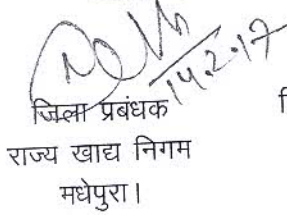 14.2.17
जिला प्रबंधक
राज्य खाद्य निगम
मधेपुरा।